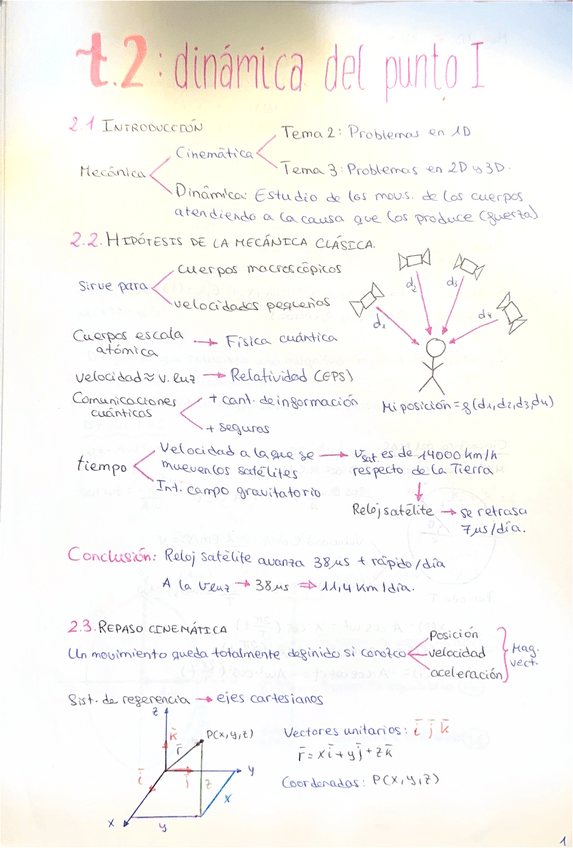 t.2: dinámica del punto I
2.1 INTRODUCCIÓN
Mecánica
Cinemática
Tema 2: Problemas en 1D
Tema 3: Problemas en 2D y 3D.
Dinámica: Estudio de los movs. de los cuerpos
atendiendo a la causa que los produce (fuerza)
2.2. HIPÓTESIS DE LA MECÁNICA CLÁSICA.
Sirve para
cuerpos macroscópicos
velocidades pequeñas
d1
d2
d3
d4
Cuerpos escala
atómica
→ Física cuántica
velocidad ≈ v. luz → Relatividad (EPS)
Comunicaciones
cuánticas
+ cant. de información
+ seguras
Mi posición = f(d1,d2,d3,d4)
tiempo
Velocidad a la que se
mueven los satélites
→ Vsat es de 14000 km/h
respecto de la Tierra
Int. campo gravitatorio
Reloj satélite → se retrasa
7μs/día.
Conclusión: Reloj satélite avanza 38μs + rápido/día
A la vluz → 38μs ⇒ 11,4 km/día.
2.3. REPASO CINEMÁTICA
Un movimiento queda totalmente definido si conozco
Posición
velocidad
aceleración
Mag.
vect.
Sist. de referencia → ejes cartesianos
z
k
r
P(x,y,z)
i
j
y
z
x
x
y
Vectores unitarios: i j k
r = xi + yj + zk
Coordenadas: P(x,y,z)
1